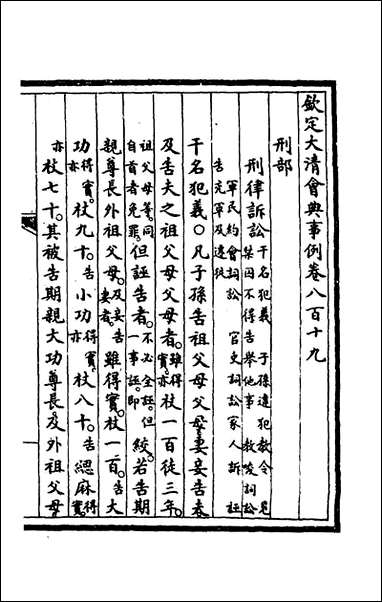 欽定大清會典事例卷八百十九
刑部
刑律訴訟干名犯義 子孫違犯教令 見
禁囚不得告舉他事 教唆詞訟
軍民約會詞訟 官吏詞訟家人訴 誣
告充軍及遷徙
干名犯義○凡子孫告祖父母父母妻妾告
及告夫之祖父母父母者雖得實亦杖一百徒三年
祖父母等同自首者免罪但誣告者不必全誣但一事誣即絞若告期
親尊長外祖父母及妾告妻者雖得實杖一百告大
功得實亦杖九十告小功得實亦杖八十告緦麻得實
亦杖七十其被告期親大功尊長及外祖父母